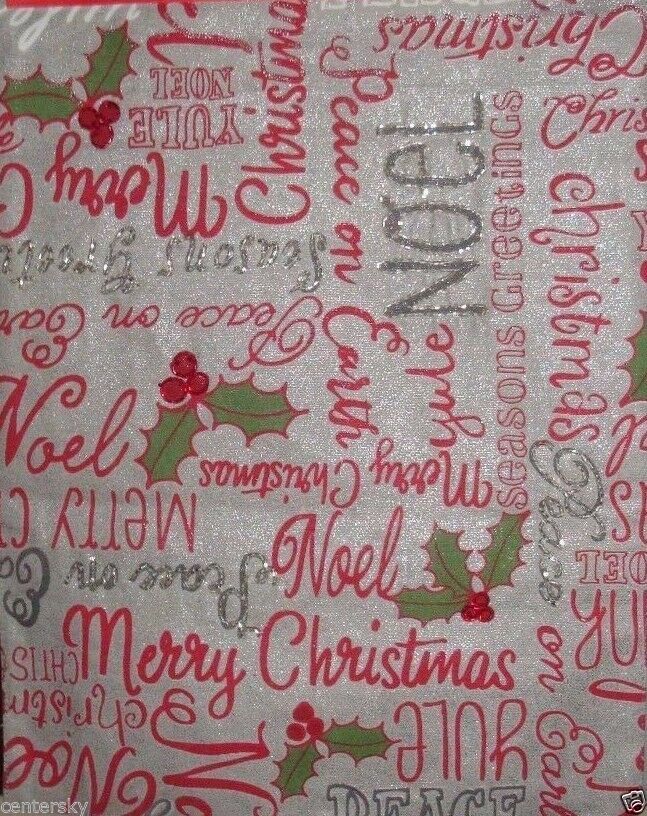 Christmas
Christmas
NOEL
YULE
Merry
Peace on Earth
NOEL
seasons Greetings
christmas
Seasons Greetin
Peace on Ear
yule
Noel
Merry Christmas
Merry Christmas
Peace
MERRY C
Noel
NOEL
Peace on Ea
Merry Christmas
CHRIS
christm
on Earl
YULE
Noe
PEACE
centersky